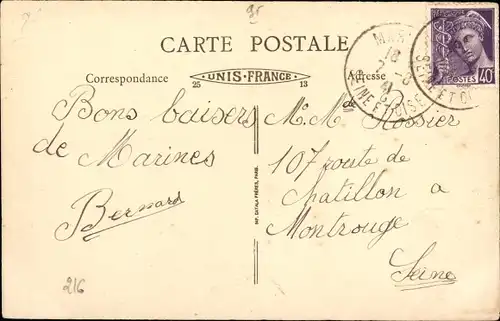 95
CARTE POSTALE
Correspondance
25 UNIS-FRANCE 13
Adresse
POSTES 40c
SEINE ET OISE
Bons baisers
de Marines
Bernard
M. Mde Rossier
107 route de
Chatillon a
Montrouge
Seine
IMP. CATALA FRÈRES, PARIS
216